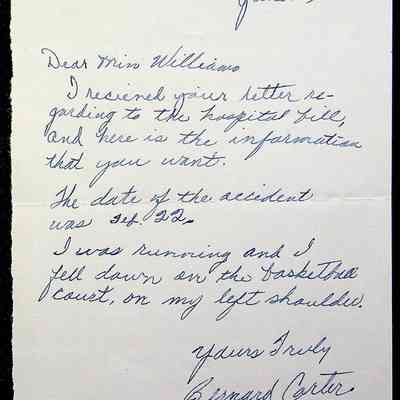 Dear Miss Williams
I recieved your letter re-
garding to the hospital bill,
and here is the information
that you want.
The date of the accident
was Feb. 22.
I was running and I
fell down on the basketball
court, on my left shoulder.
Yours Truly
Bernard Carter